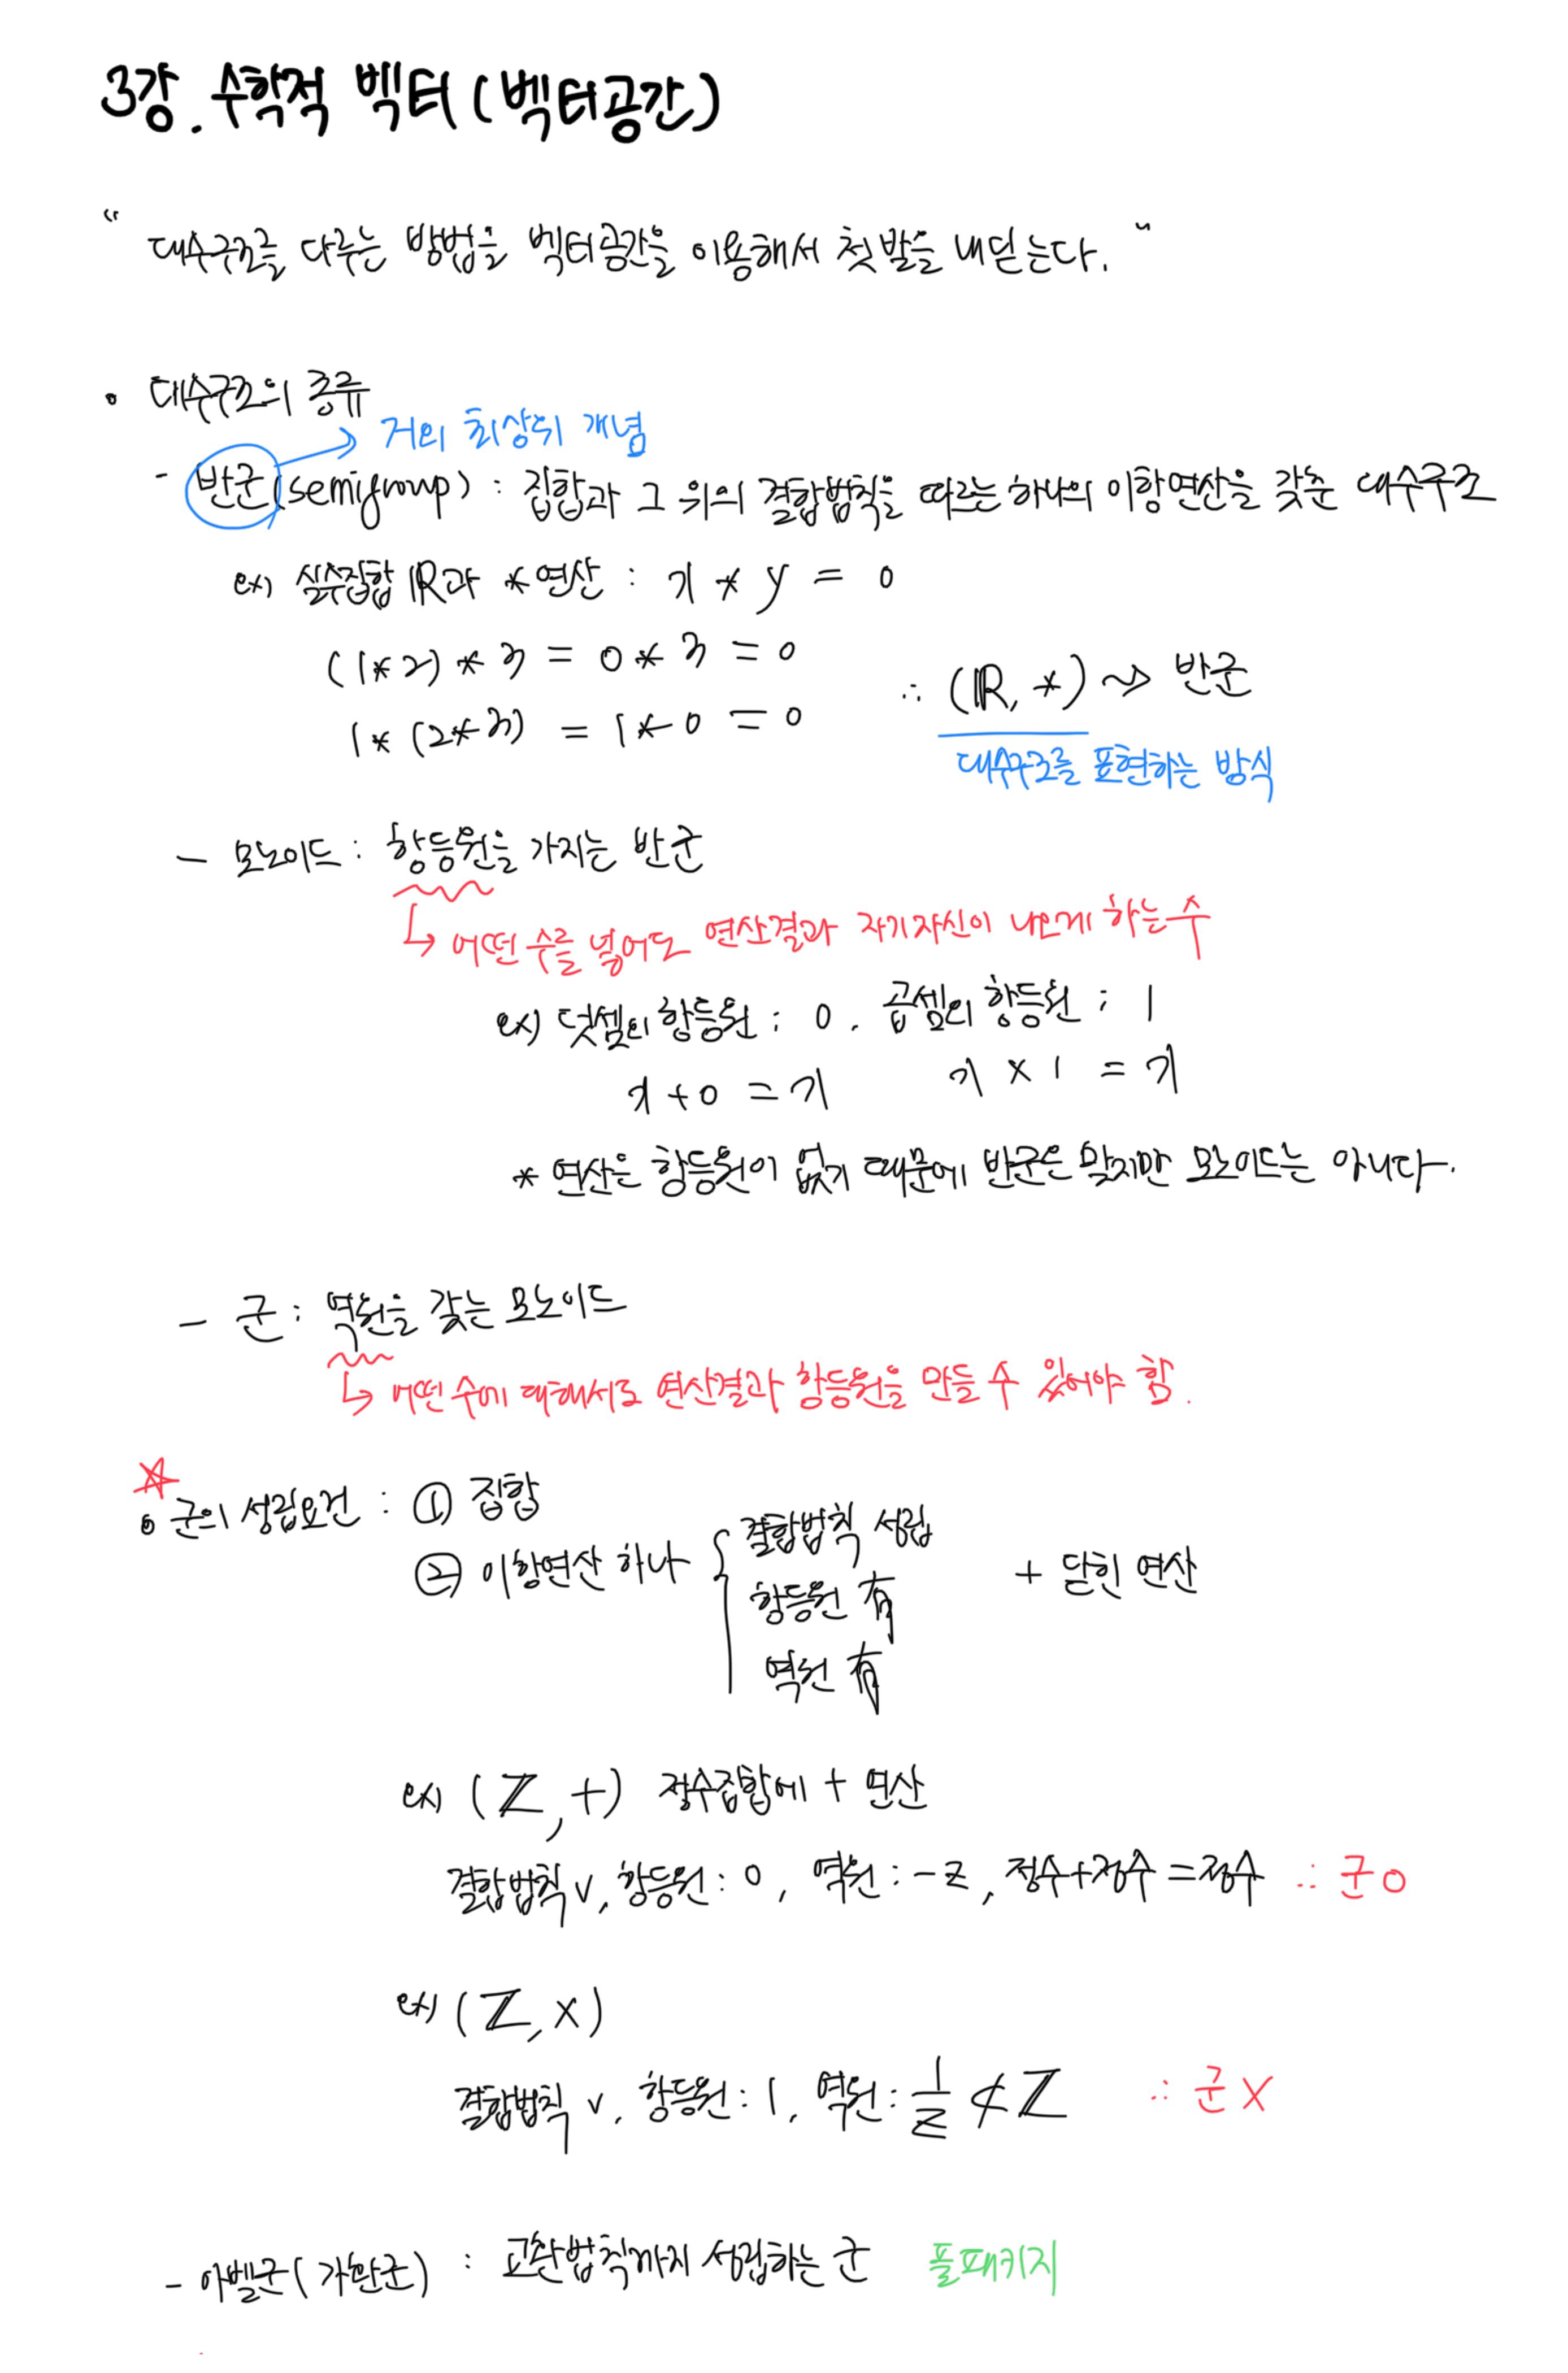 3강. 수학적 벡터 (벡터공간)
“ 대수구조를 다루는 방법을 벡터공간을 이용해서 첫 발을 내딛는다. ”
• 대수구조의 종류
→ 거의 최상위 개념
- 반군(semigroup) : 집합과 그 위의 결합법칙을 따르는 하나의 이항연산을 갖춘 대수구조
ex) 실수집합 ℝ과 * 연산 : x * y = 0
(1*2) * 3 = 0 * 3 = 0
∴ (ℝ, *) ⇝ 반군
1 * (2*3) = 1 * 0 = 0
대수구조를 표현하는 방식
- 모노이드 : 항등원을 가지는 반군
↳ 어떤 수를 넣어도 연산결과 자기자신이 나오게 하는 수
ex) 덧셈의 항등원 : 0, 곱셈의 항등원 : 1
x + 0 = x x × 1 = x
* 연산은 항등원이 없기 때문에 반군은 맞지만 모노이드는 아니다.
- 군 : 역원을 갖는 모노이드
↳ 어떤 수에 대해서도 연산결과 항등원을 만들 수 있어야 함.
☆
• 군의 성립요건 : ① 집합
② 이항연산 하나 { 결합법칙 성립 + 닫힌 연산
항등원 有
역원 有
ex) (ℤ, +) 정수집합에 + 연산
결합법칙 v, 항등원 : 0, 역원 : -z, 정수+정수 = 정수 ∴ 군 o
ex) (ℤ, ×)
결합법칙 v, 항등원 : 1, 역원 : 1/z ⊄ ℤ ∴ 군 X
- 아벨군 (가환군) : 교환법칙까지 성립하는 군 풀패키지